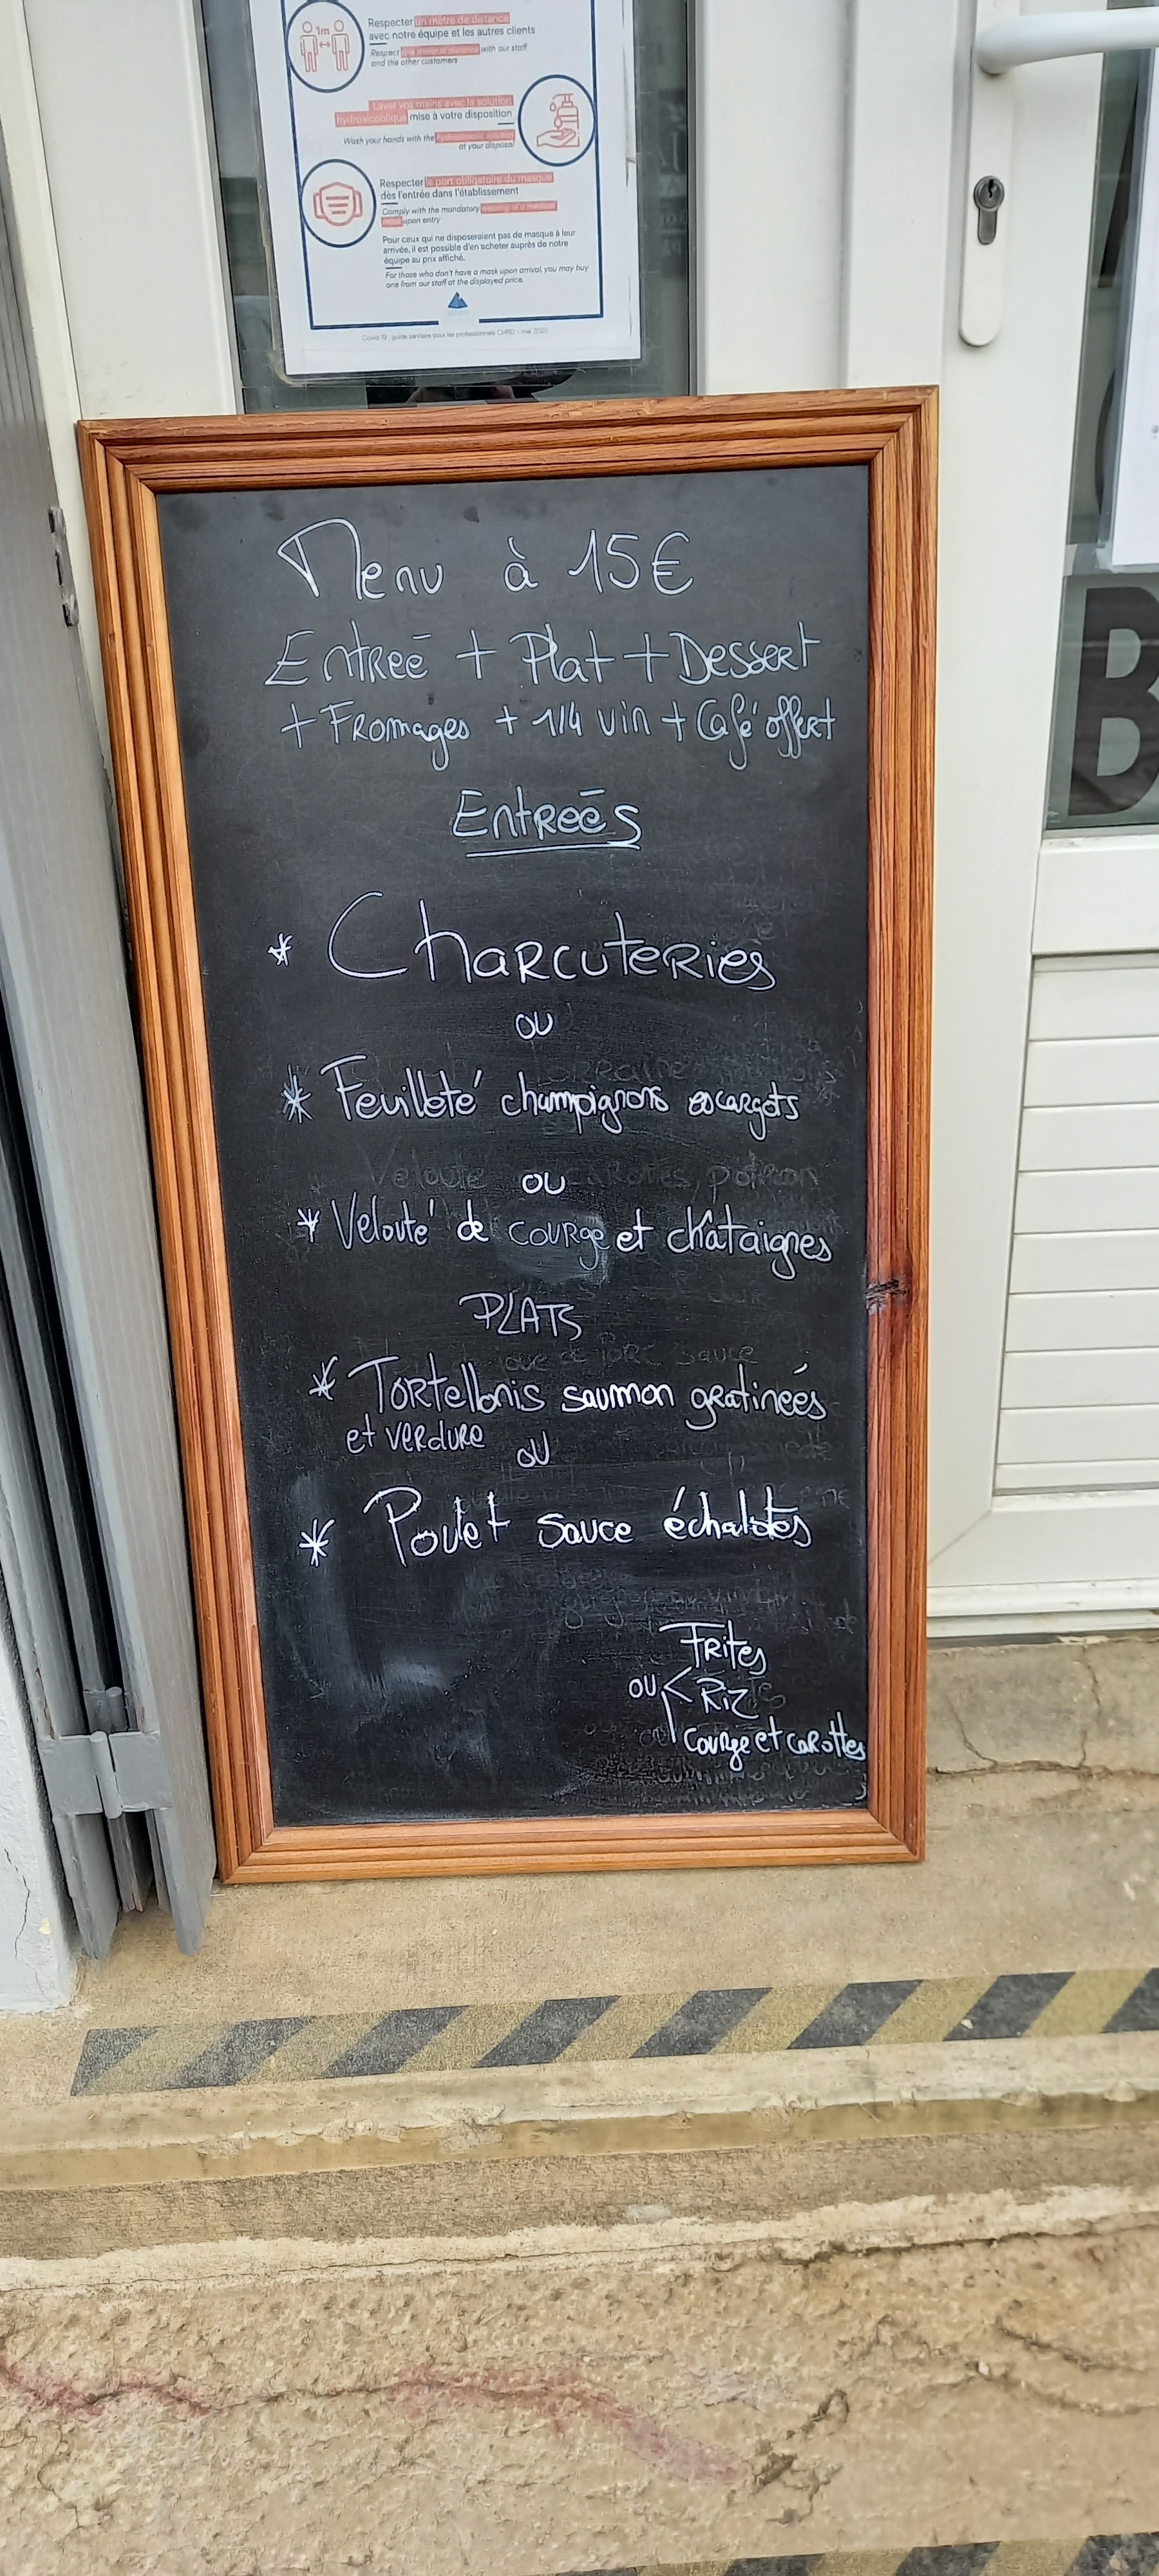 Respecter un mètre de distance
avec notre équipe et les autres clients
Respect one meter of distance with our staff
and the other customers
Laver vos mains avec la solution
hydroalcoolique mise à votre disposition
Wash your hands with the hydroalcoolic solution
at your disposal
Respecter le port obligatoire du masque
dès l'entrée dans l'établissement
Comply with the mandatory wearing of a medical
mask upon entry
Pour ceux qui ne disposeraient pas de masque à leur
arrivée, il est possible d'en acheter auprès de notre
équipe au prix affiché.
For those who don't have a mask upon arrival, you may buy
one from our staff at the displayed price.
Covid-19 : guide sanitaire pour les professionnels CHRD - mai 2020
Menu à 15€
Entreé + Plat + Dessert
+ Fromages + 1/4 vin + Café offert
Entreés
* Charcuteries
ou
* Feuilleté champignons escargots
ou
* Velouté de courge et châtaignes
PLATS
* Tortellonis saumon gratineés
et verdure
ou
* Poulet sauce échalotes
Frites
ou < Riz
courge et carottes
B